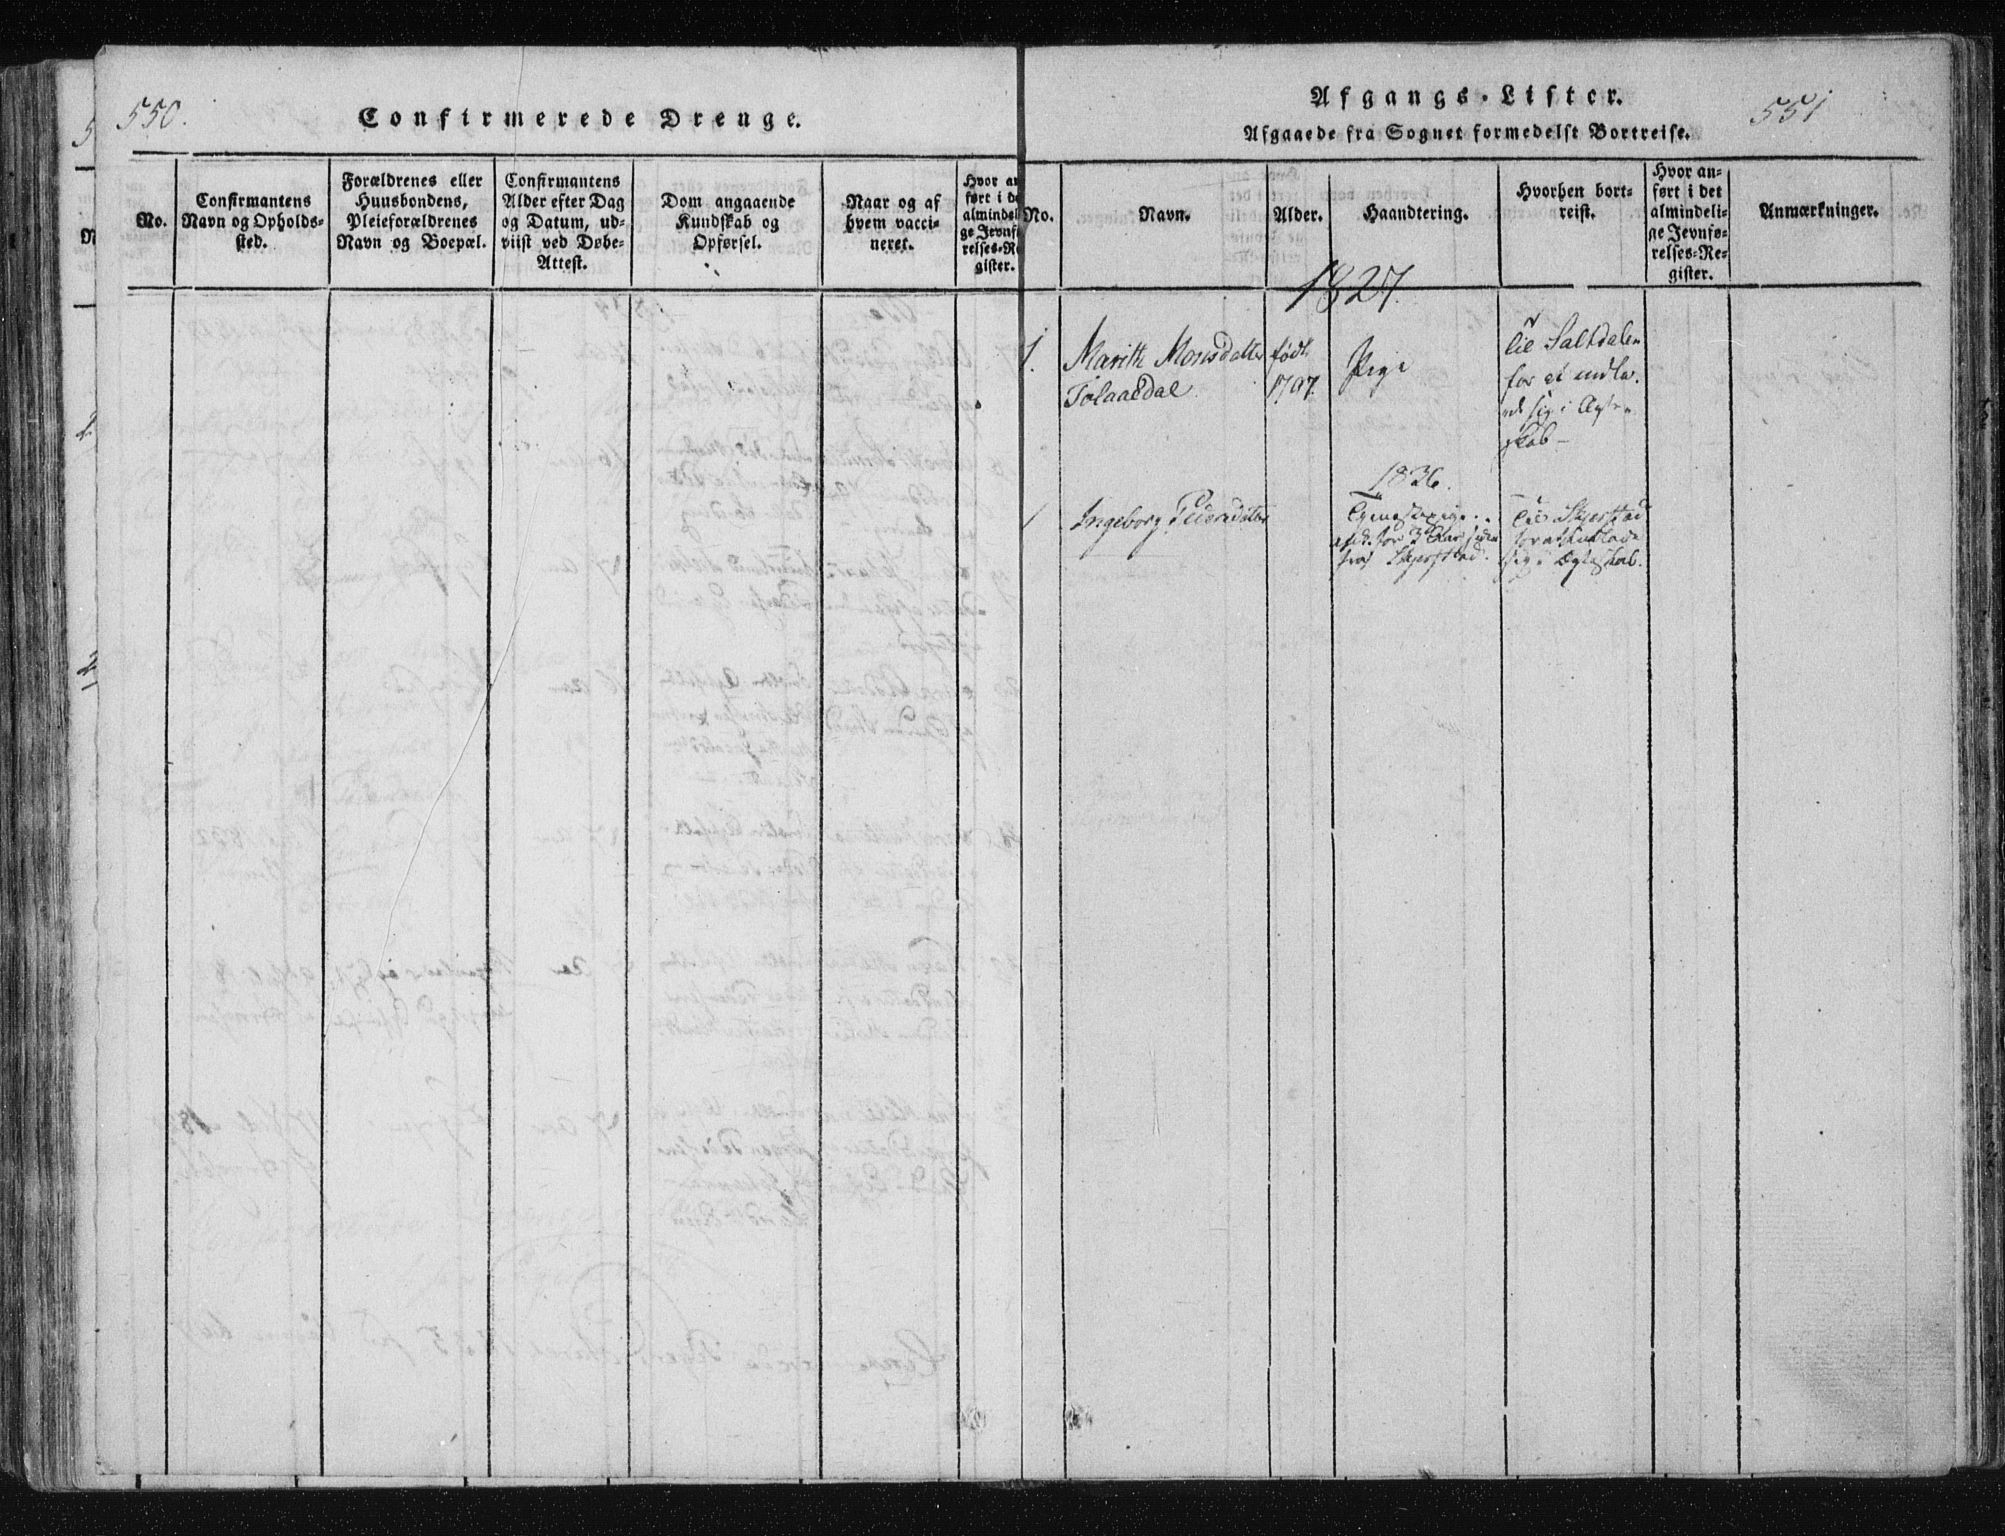 550.
Confirmerede Drenge.
No.
Confirmantens
Navn og Opholds-
sted.
Forældrenes eller
Huusbondens,
Pleieforældrenes
Navn og Boepæl.
Confirmantens
Alder efter Dag
og Datum, ud-
viist ved Døbe-
Attest.
Dom angaaende
Kundskab og
Opførsel.
Naar og af
hvem vacci-
neret.
Hvor an
ført i de
almindel
ge Jevnf
relses-Re
gister.
Afgangs-Lister.
551
Afgaaede fra Sognet formedelst Bortreise.
No.
Navn.
Alder.
Haandtering.
Hvorhen bort-
reist.
Hvor an-
ført i det
almindeli-
ge Jevnfø-
relses-Re-
gister.
Anmærkninger.
1827.
1. Marith Monsdatter født Pige til Saltdalen
1797. for at indla-
sig i Ægte-
skab-
1836.
1 Ingeborg Pedersdatter Tjenestepige Til Skjerstad
for 3 Aar siden for at indlade
fra Skjerstad. sig i Ægteskab.